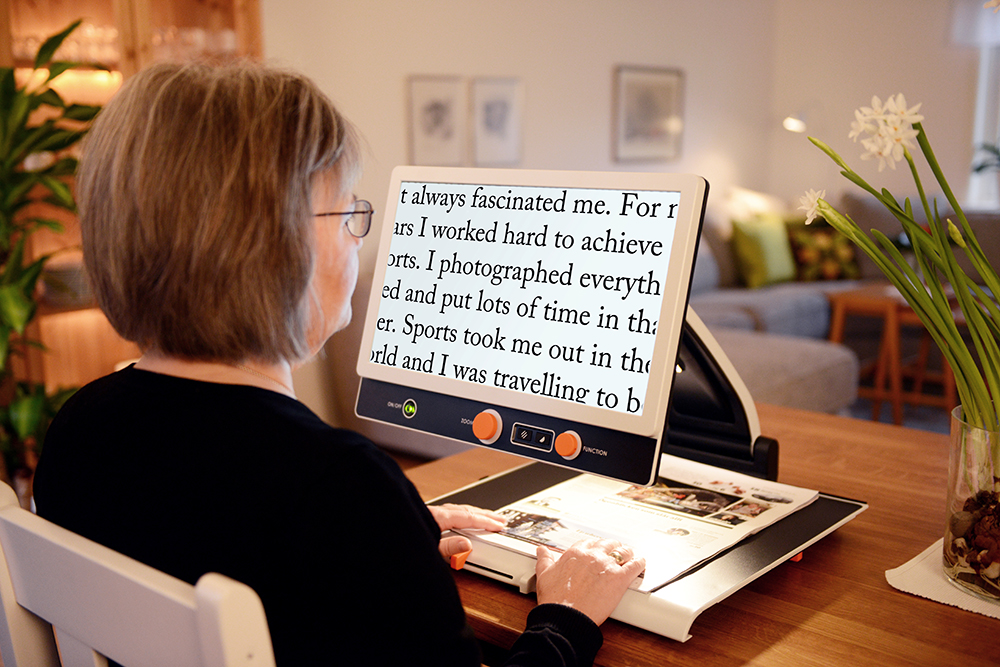 t always fascinated me. For r
ars I worked hard to achieve
orts. I photographed everyth
ed and put lots of time in tha
er. Sports took me out in the
orld and I was travelling to b
ON/OFF
ZOOM
FUNCTION